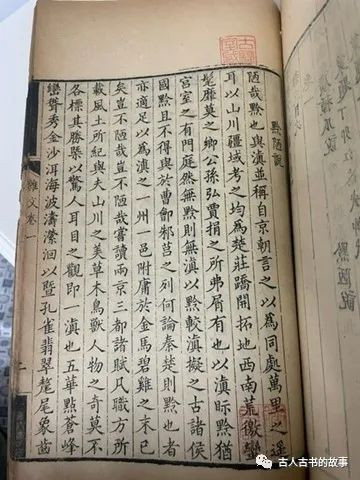 黔陋說
陋哉黔也與滇並稱自京朝言之以為同處萬里之遥
耳以山川疆域考之均為楚莊蹻開拓地西南荒徼蠻
髦靡莫之鄉公孫弘賈捐之所弗屑有也以滇眎黔猶
宮室之有門庭然無黔則無滇以黔較滇擬之古諸侯
國黔且不得與於曹鄶邾莒之列何論秦楚則黔也者
亦適足以為滇之一州一邑附庸於金馬碧雞之末已
矣豈不陋哉豈不陋哉嘗讀兩京三都諸賦凡職方所
載風土所紀與夫山川之美草木鳥獸人物之奇莫不
各標其勝槩以驚人耳目之觀即一滇也五華點蒼峰
巒聳秀金沙洱海波濤瀠洄以暨孔雀翡翠氂尾象齒
雜文卷一
黔陋說
古人古书的故事